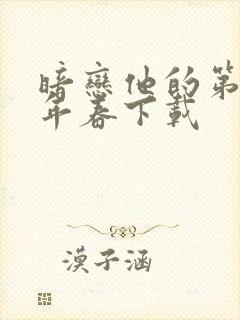 暗戀他的第
年春下載
漠子涵